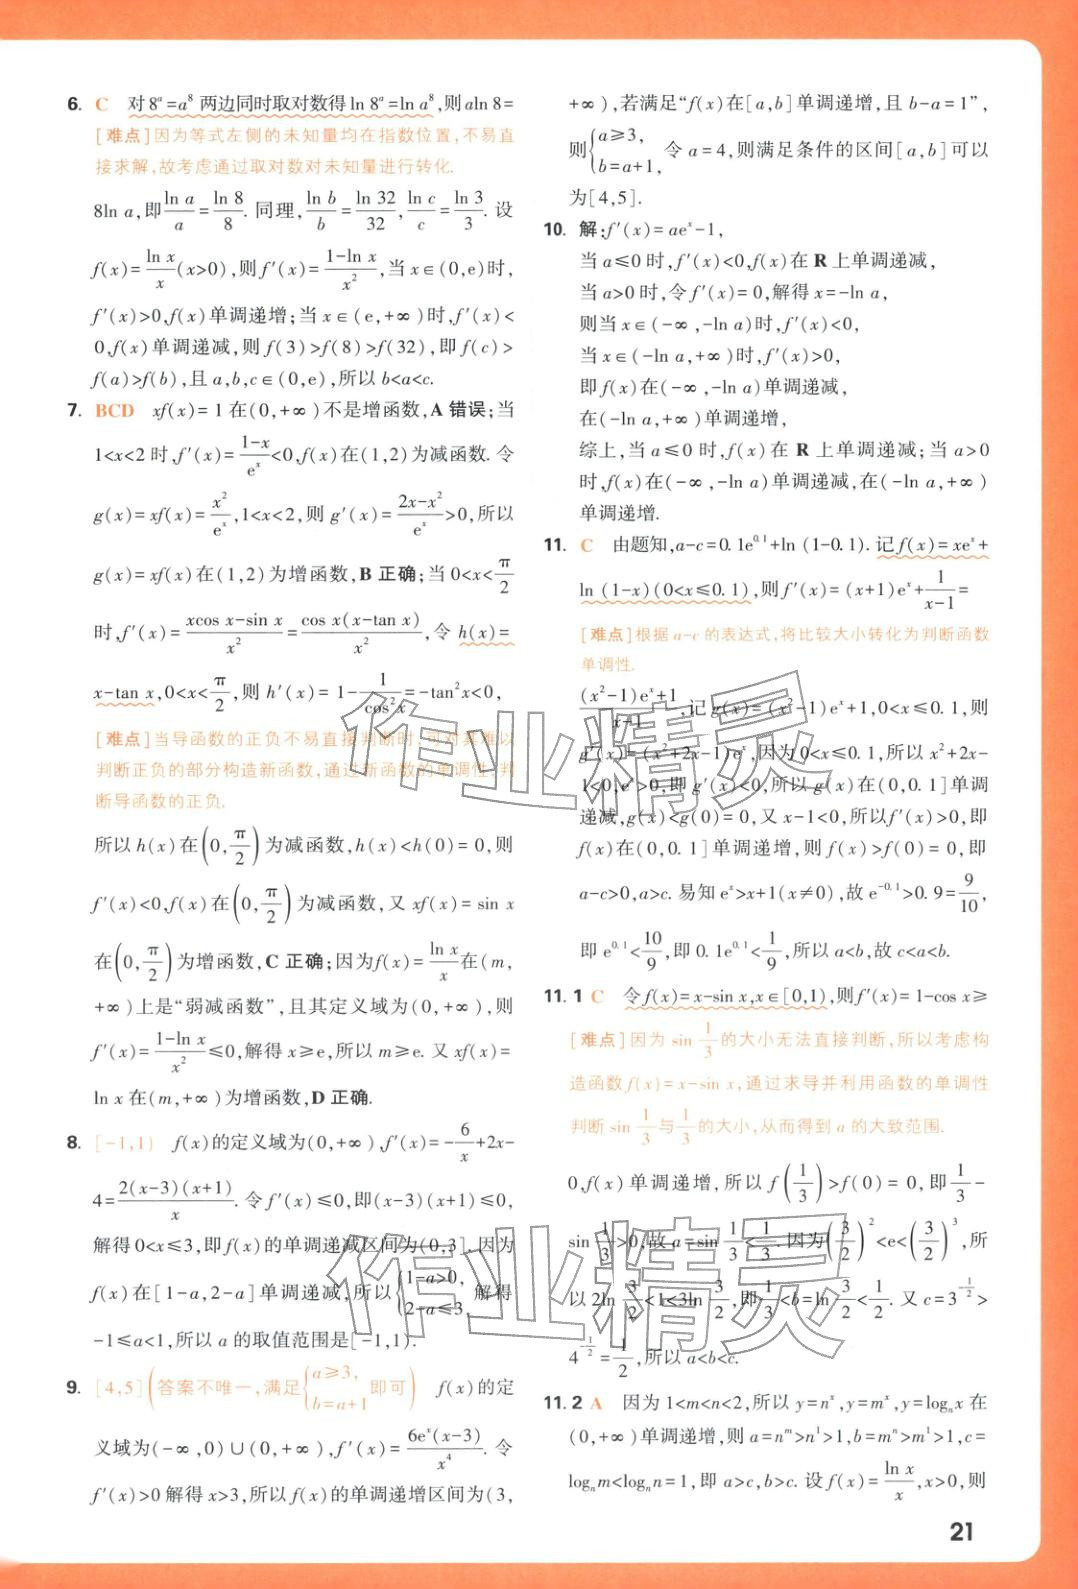 6. C 对8ᵃ=a⁸两边同时取对数得ln 8ᵃ=ln a⁸,则aln 8=
[难点]因为等式左侧的未知量均在指数位置,不易直
接求解,故考虑通过取对数对未知量进行转化.
8ln a,即ln a/a=ln 8/8.同理,ln b/b=ln 32/32,ln c/c=ln 3/3.设
f(x)=ln x/x(x>0),则f′(x)=(1-ln x)/x²,当x∈(0,e)时,
f′(x)>0,f(x)单调递增;当x∈(e,+∞)时,f′(x)<
0,f(x)单调递减,则f(3)>f(8)>f(32),即f(c)>
f(a)>f(b),且a,b,c∈(0,e),所以b<a<c.
7. BCD xf(x)=1在(0,+∞)不是增函数,A错误;当
1<x<2时,f′(x)=(1-x)/eˣ<0,f(x)在(1,2)为减函数.令
g(x)=xf(x)=x²/eˣ,1<x<2,则g′(x)=(2x-x²)/eˣ>0,所以
g(x)=xf(x)在(1,2)为增函数,B正确;当0<x<π/2
时,f′(x)=(xcos x-sin x)/x²=cos x(x-tan x)/x²,令h(x)=
x-tan x,0<x<π/2,则h′(x)=1-1/cos²x=-tan²x<0,
[难点]当导函数的正负不易直接判断时,可对其难以
判断正负的部分构造新函数,通过新函数的单调性判
断导函数的正负.
所以h(x)在(0,π/2)为减函数,h(x)<h(0)=0,则
f′(x)<0,f(x)在(0,π/2)为减函数,又xf(x)=sin x
在(0,π/2)为增函数,C正确;因为f(x)=ln x/x在(m,
+∞)上是“弱减函数”,且其定义域为(0,+∞),则
f′(x)=(1-ln x)/x²≤0,解得x≥e,所以m≥e.又xf(x)=
ln x在(m,+∞)为增函数,D正确.
8. [-1,1) f(x)的定义域为(0,+∞),f′(x)=-6/x+2x-
4=2(x-3)(x+1)/x.令f′(x)≤0,即(x-3)(x+1)≤0,
解得0<x≤3,即f(x)的单调递减区间为(0,3].因为
f(x)在[1-a,2-a]单调递减,所以{1-a>0, 2-a≤3, 解得
-1≤a<1,所以a的取值范围是[-1,1).
9. [4,5](答案不唯一,满足{a≥3, b=a+1 即可) f(x)的定
义域为(-∞,0)∪(0,+∞),f′(x)=6eˣ(x-3)/x⁴.令
f′(x)>0解得x>3,所以f(x)的单调递增区间为(3,
+∞),若满足“f(x)在[a,b]单调递增,且b-a=1”,
则{a≥3, b=a+1, 令a=4,则满足条件的区间[a,b]可以
为[4,5].
10. 解:f′(x)=aeˣ-1,
当a≤0时,f′(x)<0,f(x)在R上单调递减,
当a>0时,令f′(x)=0,解得x=-ln a,
则当x∈(-∞,-ln a)时,f′(x)<0,
当x∈(-ln a,+∞)时,f′(x)>0,
即f(x)在(-∞,-ln a)单调递减,
在(-ln a,+∞)单调递增,
综上,当a≤0时,f(x)在R上单调递减;当a>0
时,f(x)在(-∞,-ln a)单调递减,在(-ln a,+∞)
单调递增.
11. C 由题知,a-c=0.1e⁰·¹+ln (1-0.1).记f(x)=xeˣ+
ln (1-x)(0<x≤0.1),则f′(x)=(x+1)eˣ+1/(x-1)=
[难点]根据a-c的表达式,将比较大小转化为判断函数
单调性.
((x²-1)eˣ+1)/(x-1),记g(x)=(x²-1)eˣ+1,0<x≤0.1,则
g′(x)=(x²+2x-1)eˣ,因为0<x≤0.1,所以x²+2x-
1<0,eˣ>0,即g′(x)<0,所以g(x)在(0,0.1]单调
递减,g(x)<g(0)=0,又x-1<0,所以f′(x)>0,即
f(x)在(0,0.1]单调递增,则f(x)>f(0)=0,即
a-c>0,a>c.易知eˣ>x+1(x≠0),故e⁻⁰·¹>0.9=9/10,
即e⁰·¹<10/9,即0.1e⁰·¹<1/9,所以a<b,故c<a<b.
11.1 C 令f(x)=x-sin x,x∈[0,1),则f′(x)=1-cos x≥
[难点]因为sin 1/3的大小无法直接判断,所以考虑构
造函数f(x)=x-sin x,通过求导并利用函数的单调性
判断sin 1/3与1/3的大小,从而得到a的大致范围.
0,f(x)单调递增,所以f(1/3)>f(0)=0,即1/3-
sin 1/3>0,故a=sin 1/3<1/3.因为(3/2)²<e<(3/2)³,所
以2ln 3/2<1<3ln 3/2,即1/3<b=ln 3/2<1/2.又c=3^(-1/2)>
4^(-1/2)=1/2,所以a<b<c.
11.2 A 因为1<m<n<2,所以y=nˣ,y=mˣ,y=logₙx在
(0,+∞)单调递增,则a=nᵐ>n¹>1,b=mⁿ>m¹>1,c=
logₙm<logₙn=1,即a>c,b>c.设f(x)=ln x/x,x>0,则
21
作业精灵
作业精灵